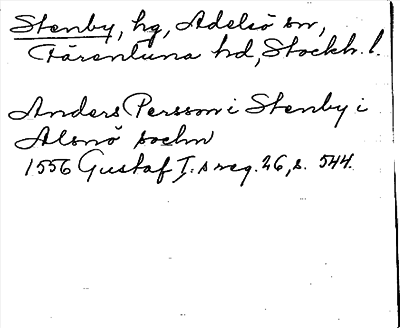 Stenby, hg, Adelsö sn,
Färentuna hd, Stockh. l.
Anders Persson i Stenby i
Alsnö sochn
1556 Gustaf I.s reg. 26, s. 544.